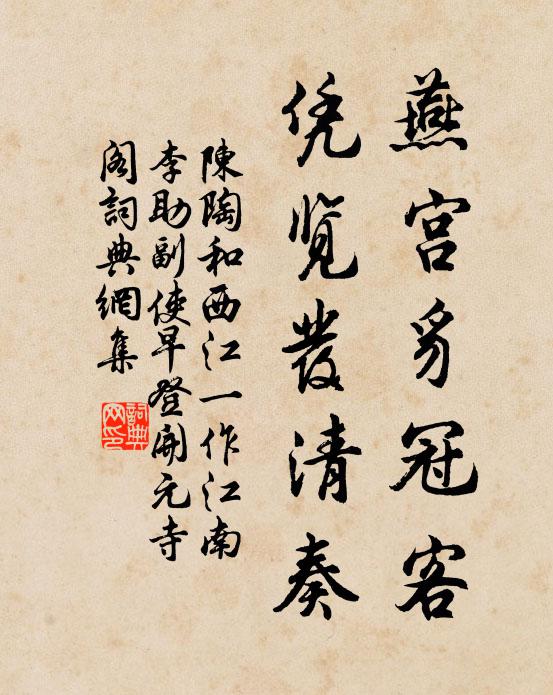 燕宫豸冠客
凭览發清奏
陳陶和西江一作江南
李助副使早登開元寺
閣詞典網集
詞典网印